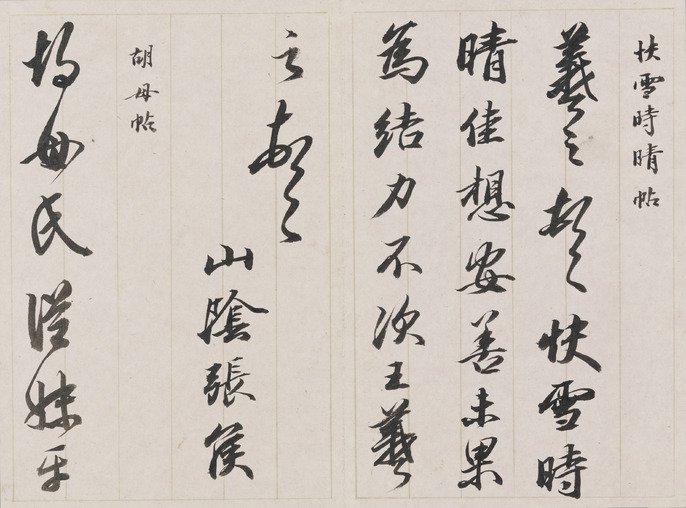 快雪時晴帖
羲之頓首快雪時
晴佳想安善未果
為結力不次王羲
之頓首
山陰張侯
胡母帖
胡母氏從妹平